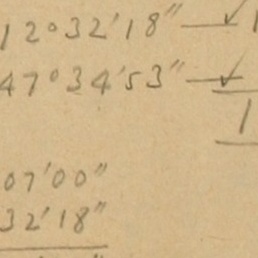 12°32'18" ✓ 1
47°34'53" ✓
1
07'00"
32'18"